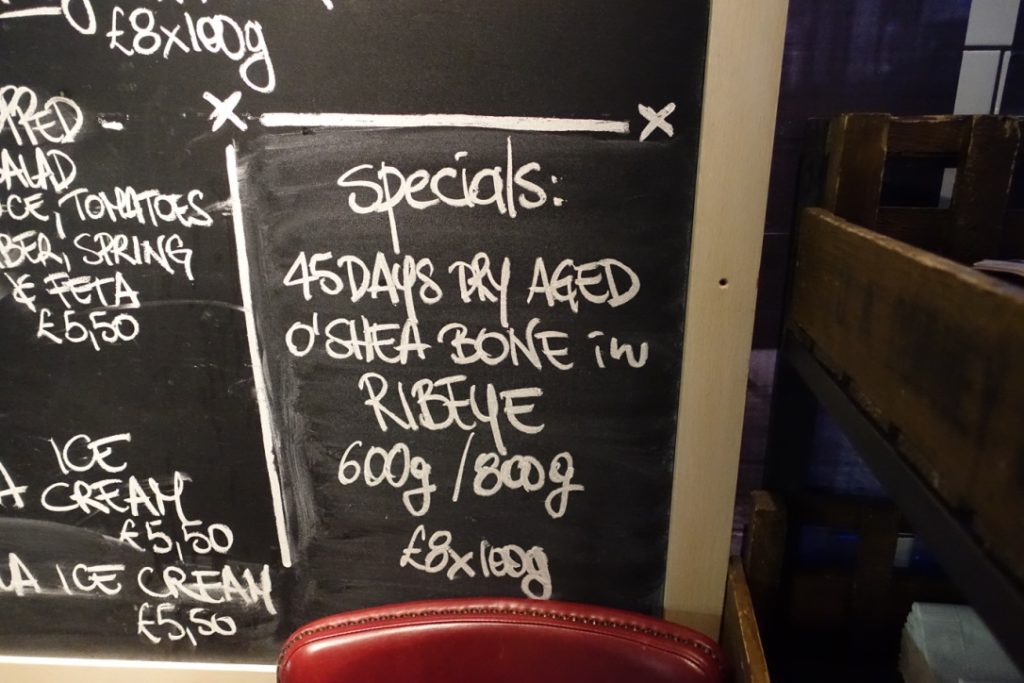 £8x100g
SALAD
TOMATOES
SPRING
& FETA
£5,50
ICE
CREAM
£5,50
ICE CREAM
£5,50
specials:
45 DAYS DRY AGED
O'SHEA BONE in
RIBEYE
600g/800g
£8x100g